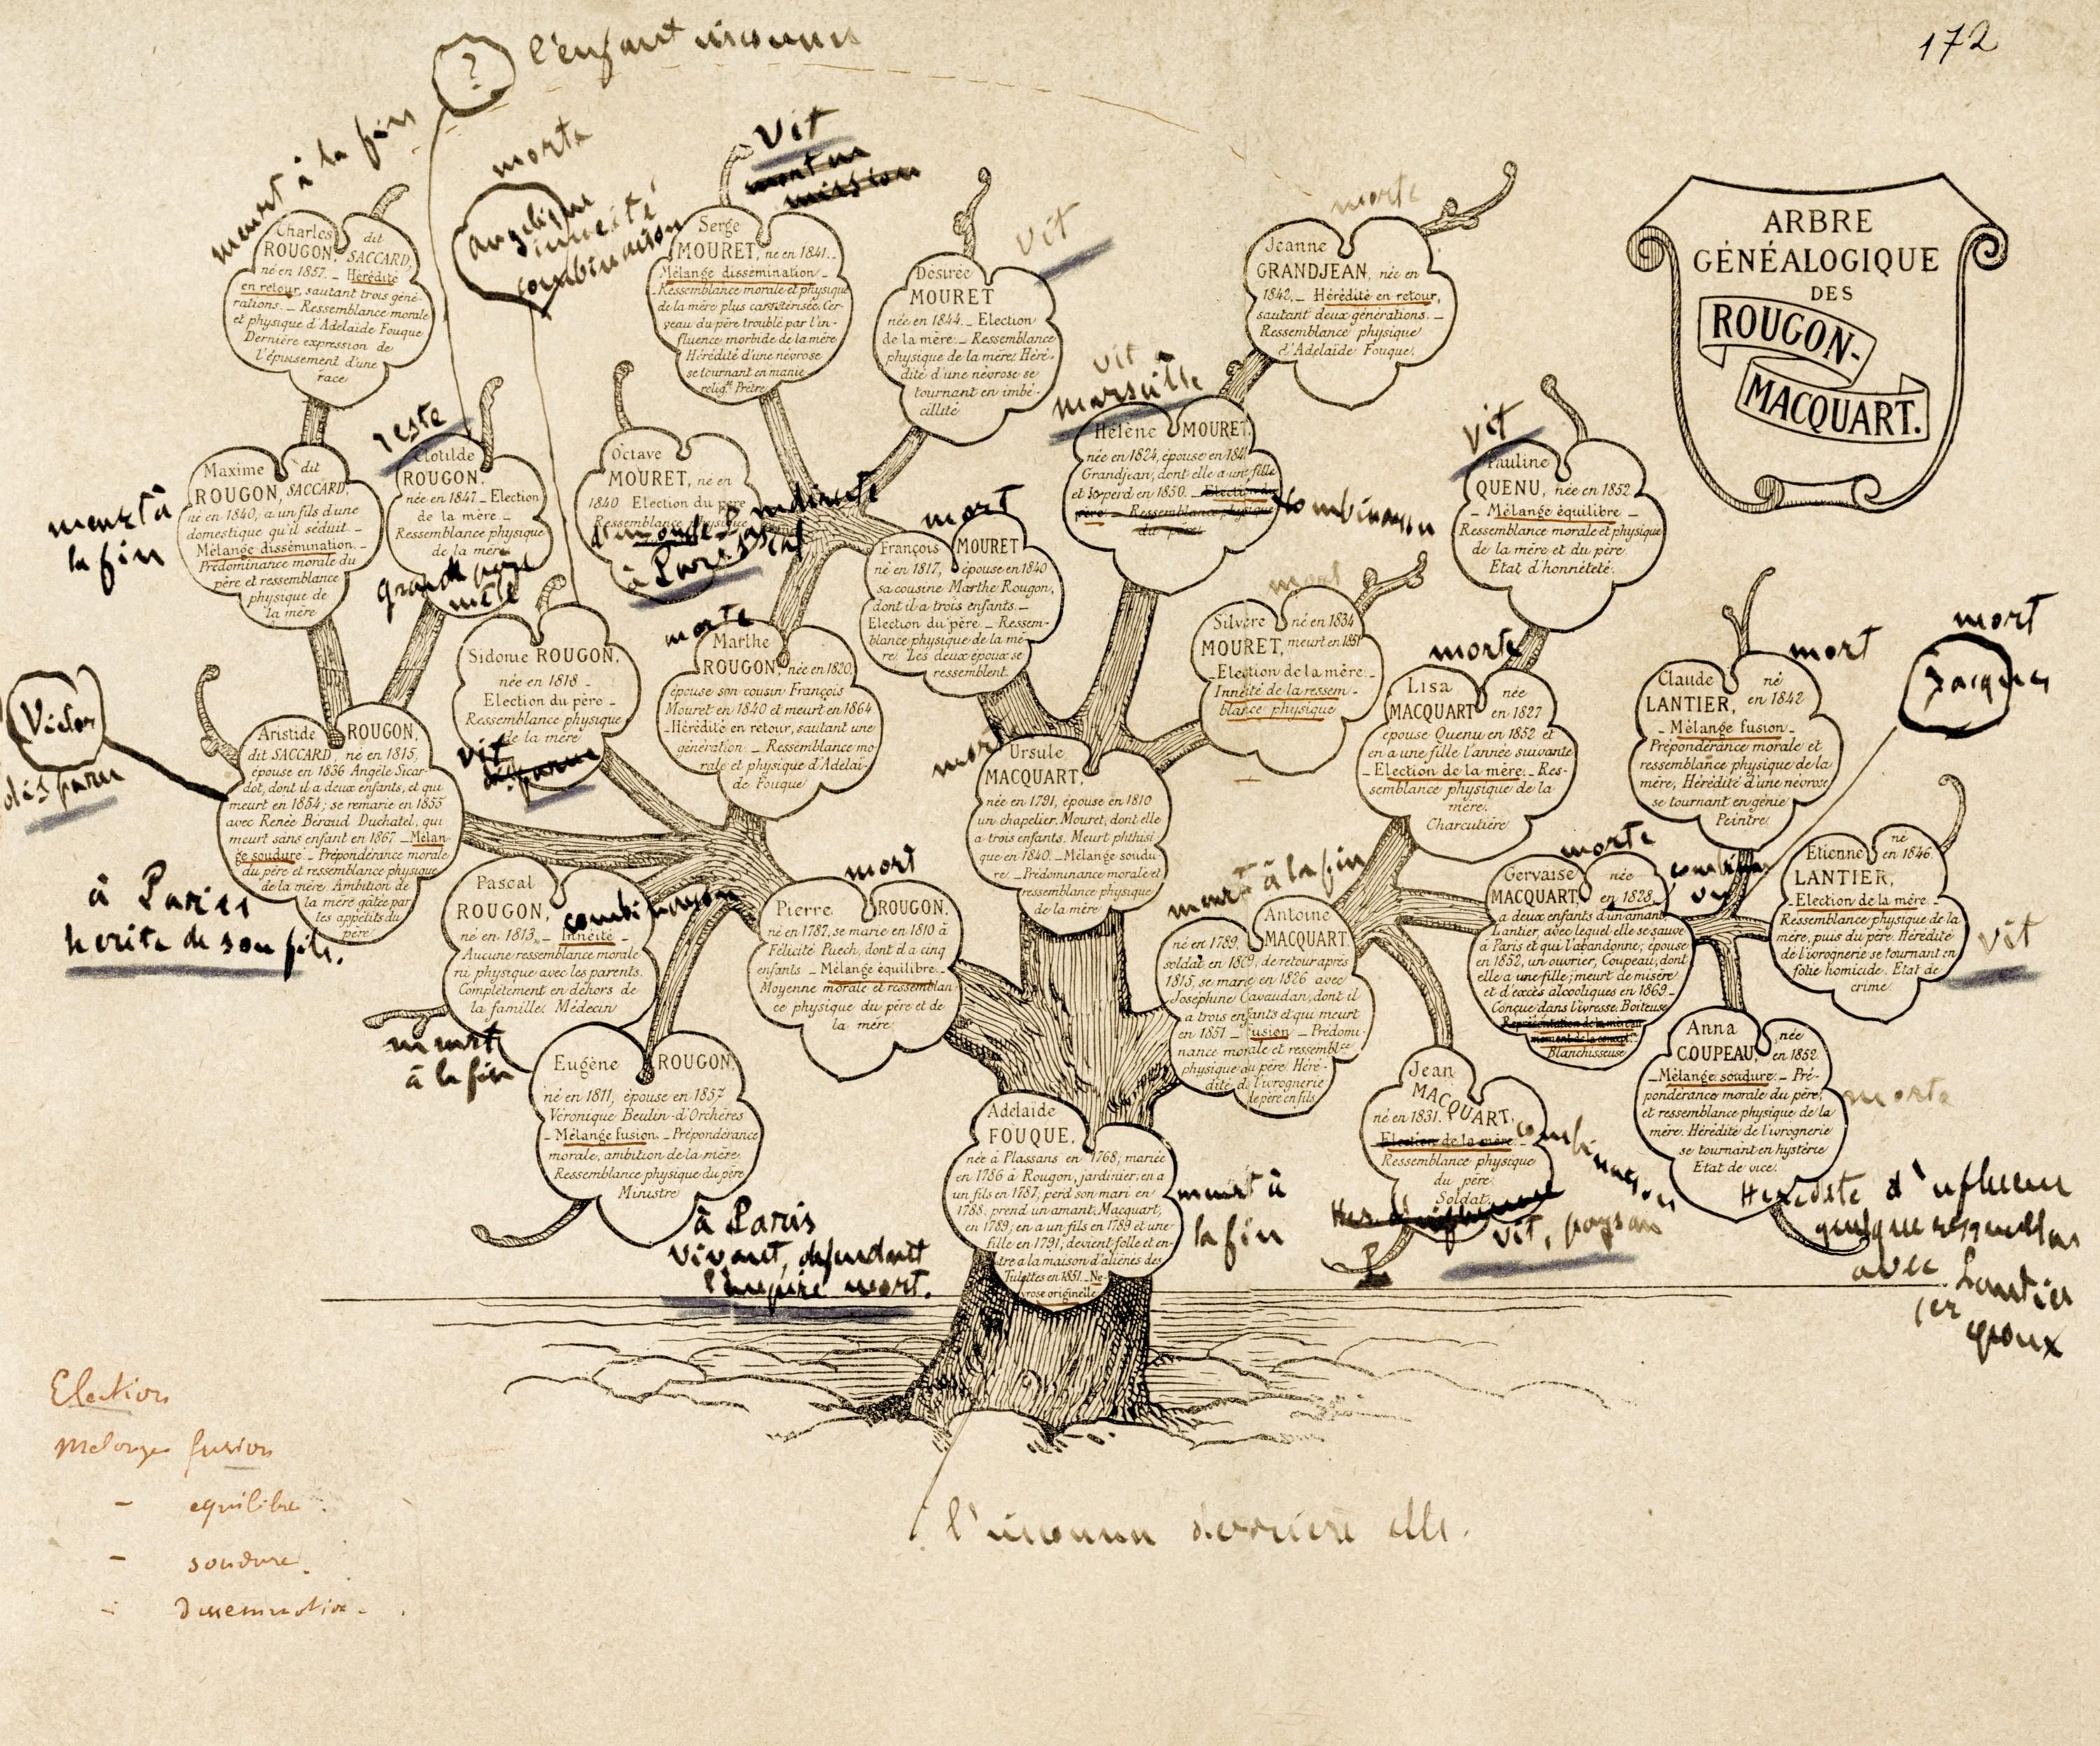 172
l'enfant inconnu
?
ARBRE
GÉNÉALOGIQUE
DES
ROUGON-
MACQUART.
meurt à la fin
Charles dit
ROUGON, SACCARD,
né en 1857. _ Hérédité
en retour, sautant trois géné-
rations. _ Ressemblance morale
et physique d'Adelaïde Fouque
Dernière expression de
l'épuisement d'une
race
morte
angelique
inneité
combinaison
Vit
mort en
mission
Serge
MOURET, né en 1841._
Mélange dissémination _
Ressemblance morale et physique
de la mère plus caractérisée. Cer-
veau du père troublé par l'in-
fluence morbide de la mère
Hérédité d'une névrose
se tournant en manie
relig.se Prêtre
vit
Désirée
MOURET
née en 1844._ Election
de la mère._ Ressemblance
physique de la mère. Héré-
dité d'une névrose se
tournant en imbé-
cillité
morte
Jeanne
GRANDJEAN, née en
1842._ Hérédité en retour,
sautant deux générations._
Ressemblance physique
d'Adelaïde Fouque.
meurt à
la fin
Maxime dit
ROUGON, SACCARD,
né en 1840, a un fils d'une
domestique qu'il séduit _
Mélange dissémination._
Prédominance morale du
père et ressemblance
physique de
la mère
reste
Clotilde
ROUGON,
née en 1847_ Election
de la mère _
Ressemblance physique
de la mère
grand père
Octave
MOURET, né en
1840 Election du père
Ressemblance physique
à Paris
vit
marseille
Hélène MOURET,
née en 1824, épouse en 1841
Grandjean, dont elle a une fille
et le perd en 1850. _ Election du
père _ Ressemblance physique
du père
combinaison
mort
François MOURET
né en 1817, épouse en 1840
sa cousine Marthe Rougon,
dont il a trois enfants._
Election du père._ Ressem-
blance physique de la mè-
re. Les deux époux se
ressemblent.
vit
Pauline
QUENU, née en 1852
_ Mélange équilibre _
Ressemblance morale et physique
de la mère et du père
Etat d'honnêteté.
Sidonie ROUGON,
née en 1818 _
Election du père _
Ressemblance physique
de la mère
vit
disparue
morte
Marthe
ROUGON, née en 1820,
épouse son cousin François
Mouret en 1840 et meurt en 1864
_Hérédité en retour, sautant une
génération _ Ressemblance mo-
rale et physique d'Adelaï-
de Fouque
mort
Silvère né en 1834
MOURET, meurt en 1851
_Election de la mère._
Innéité de la ressem-
blance physique
morte
Lisa née
MACQUART en 1827
épouse Quenu en 1852 et
en a une fille l'année suivante
_ Election de la mère._ Res-
semblance physique de la
mère.
Charcutière
mort
Claude né
LANTIER, en 1842
_ Mélange fusion._
Prépondérance morale et
ressemblance physique de la
mère, Hérédité d'une névrose
se tournant en génie
Peintre
mort
Jacques
Victor
disparu
Aristide ROUGON,
dit SACCARD, né en 1815,
épouse en 1836 Angèle Sicar-
dot, dont il a deux enfants, et qui
meurt en 1854; se remarie en 1855
avec Renée Béraud Duchatel, qui
meurt sans enfant en 1867 _ Mélan-
ge soudure _ Prépondérance morale
du père et ressemblance physique
de la mère. Ambition de
la mère gâtée par
les appétits du
père
à Paris
herite de son fils.
mort
Ursule
MACQUART,
née en 1791, épouse en 1810
un chapelier, Mouret, dont elle
a trois enfants. Meurt phthisi-
que en 1840. _ Mélange soudu-
re _ Prédominance morale et
ressemblance physique
de la mère
Pascal
ROUGON,
né en 1813._ Innéité _
Aucune ressemblance morale
ni physique avec les parents.
Complètement en dehors de
la famille. Médecin
combinaison
meurt
à la fin
mort
Pierre ROUGON,
né en 1787, se marie en 1810 à
Félicité Puech, dont il a cinq
enfants _ Mélange équilibre._
Moyenne morale et ressemblan-
ce physique du père et de
la mère
meurt à la fin
Antoine
MACQUART,
né en 1789,
soldat en 1809, de retour après
1815, se marie en 1826 avec
Joséphine Cavaudan, dont il
a trois enfants et qui meurt
en 1851 _ fusion _ Prédomi-
nance morale et ressembl.ce
physique du père. Héré-
dité de l'ivrognerie
de père en fils
morte
Gervaise née
MACQUART, en 1828,
a deux enfants d'un amant,
Lantier, avec lequel elle se sauve
à Paris et qui l'abandonne; épouse
en 1852, un ouvrier, Coupeau, dont
elle a une fille; meurt de misère
et d'excès alcooliques en 1869_
Conçue dans l'ivresse. Boiteuse
Représentation de la mère au
moment de la concept.on
Blanchisseuse
Etienne né en 1846.
LANTIER,
_ Election de la mère _
Ressemblance physique de la
mère, puis du père. Hérédité
de l'ivrognerie se tournant en
folie homicide. Etat de
crime
vit
Eugène ROUGON,
né en 1811, épouse en 1857
Véronique Beulin-d'Orchères
_ Mélange fusion. _ Prépondérance
morale, ambition de la mère.
Ressemblance physique du père
Ministre
à Paris
vivant, défendant
l'empire mort.
Adelaïde
FOUQUE,
née à Plassans en 1768; mariée
en 1786 à Rougon, jardinier; en a
un fils en 1787, perd son mari en
1788, prend un amant, Macquart,
en 1789; en a un fils en 1789 et une
fille en 1791; devient folle et en-
tre à la maison d'aliénés des
Tulettes en 1851._ Né-
vrose originelle
meurt à
la fin
Jean
MACQUART,
né en 1831.
_Election de la mère._
Ressemblance physique
du père
Soldat
combinaison
vit, paysan
Anna née
COUPEAU, en 1852
_Mélange soudure._ Pré-
pondérance morale du père,
et ressemblance physique de la
mère. Hérédité de l'ivrognerie
se tournant en hystérie
Etat de vice.
morte
Heredite d'influence
quelque ressemblance
avec Lantier
1er
epoux
Election
Melange fusion
- equilibre
- soudure.
- Dissemination.
l'inconnu derrière elle.